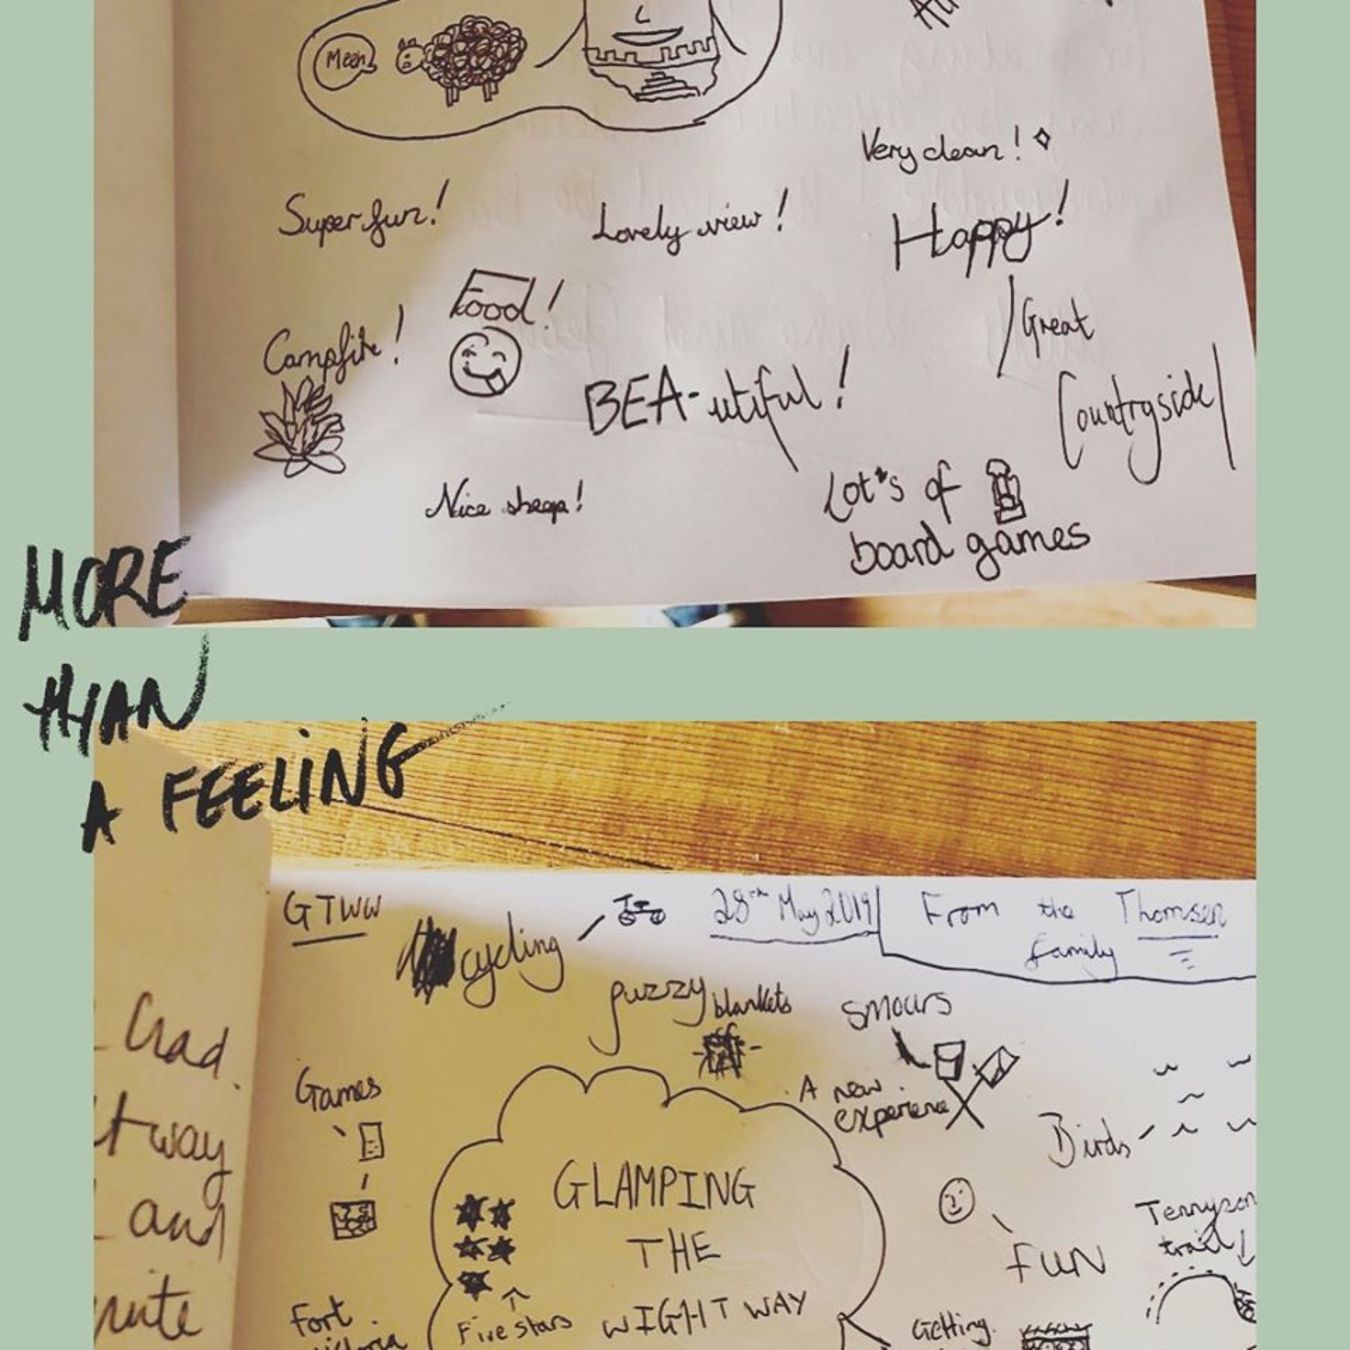 Meeh
Very clean!
Super fun!
Lovely view!
Happy!
Food!
Great
Campfire!
BEA-utiful!
Countryside
Nice sheep!
Lot's of
board games
MORE
THAN
A FEELING
GTWW
cycling
28th May 2019
From the Thomsen
family
fuzzy blankets
smours
Games
A new
experience
Birds
and
GLAMPING
THE
WIGHT WAY
Five stars
FUN
Tennyson
trail
Fort
Getting